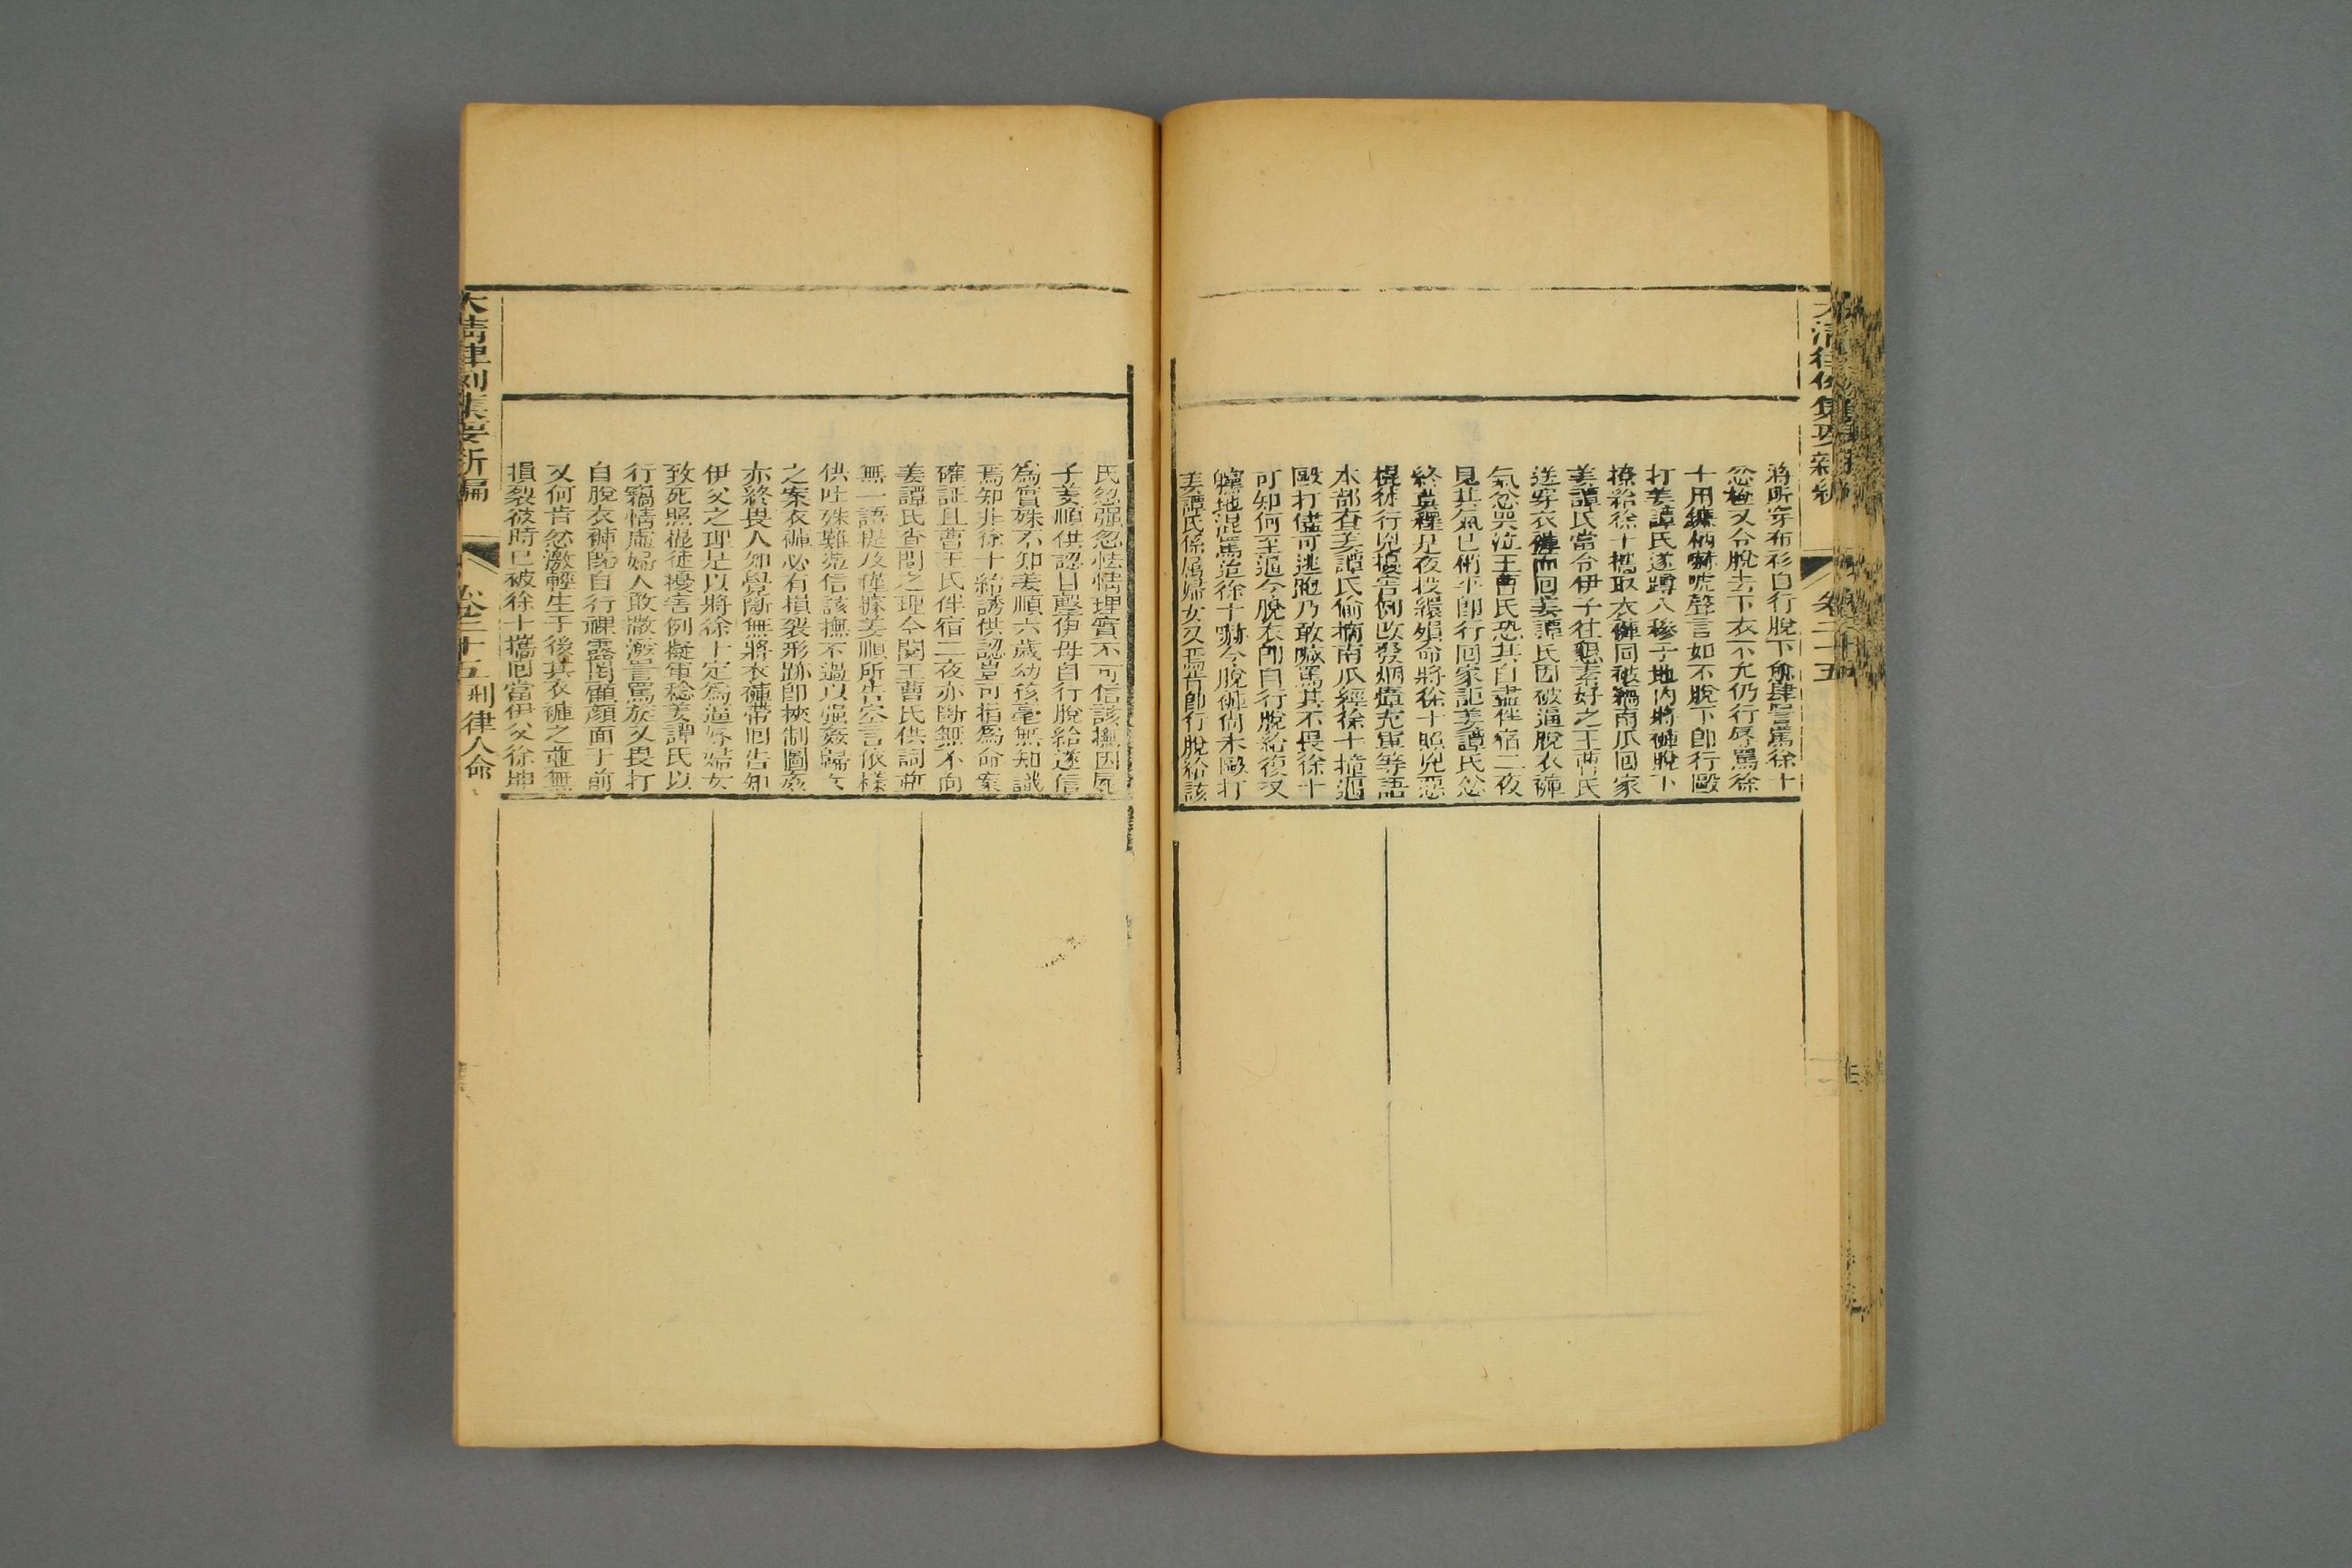 大清律例集要新編
卷二十五
將所穿布衫自行脫下愈肆詈罵徐十
忿極又令脫去下衣不允仍行辱罵徐
十用鐮柄嚇唬聲言如不脫下卽行毆
打姜譚氏遂蹲入穇子地內將褲脫下
撩給徐十攜取衣褲同被竊南瓜回家
姜譚氏當令伊子往懇素好之王曹氏
送穿衣褲而回姜譚氏因被逼脫衣褲
氣忿哭泣王曹氏恐其自盡伴宿二夜
見其氣已稍平卽行回家詎姜譚氏忿
終莫釋是夜投繯殞命將徐十照兇惡
棍徒行兇擾害例改發烟瘴充軍等語
本部查姜譚氏偷摘南瓜經徐十撞遇
毆打儘可逃跑乃敢喊罵其不畏徐十
可知何至逼令脫衣卽自行脫給復又
躺地混罵迨徐十嚇令脫褲尙未毆打
姜譚氏係屬婦女又焉肯卽行脫給該
氏忽强忽怯情理實不可信該撫因屍
子姜順供認目擊伊母自行脫給遂信
爲實殊不知姜順六歲幼孩毫無知識
焉知非徐十給誘供認豈可指爲命案
確証且曹王氏伴宿二夜亦斷無不向
姜譚氏查問之理今閱王曹氏供詞並
無一語提及僅據姜順所告空言依樣
供吐殊難憑信該撫不過以强姦歸女
之案衣褲必有損裂形跡卽挾制圖姦
亦終畏人知覺斷無將衣褲帶回告知
伊父之理是以將徐十定爲逼辱婦女
致死照棍徒擾害例擬軍稔姜譚氏以
行竊情虛婦人敢撒潑詈罵旋又畏打
自脫衣褲旣自行裸露罔顧顏面于前
又何肯忿激輕生于後其衣褲之並無
損裂彼時已被徐十攜回當伊父徐坤
大清律例集要新編
卷二十五
刑律人命